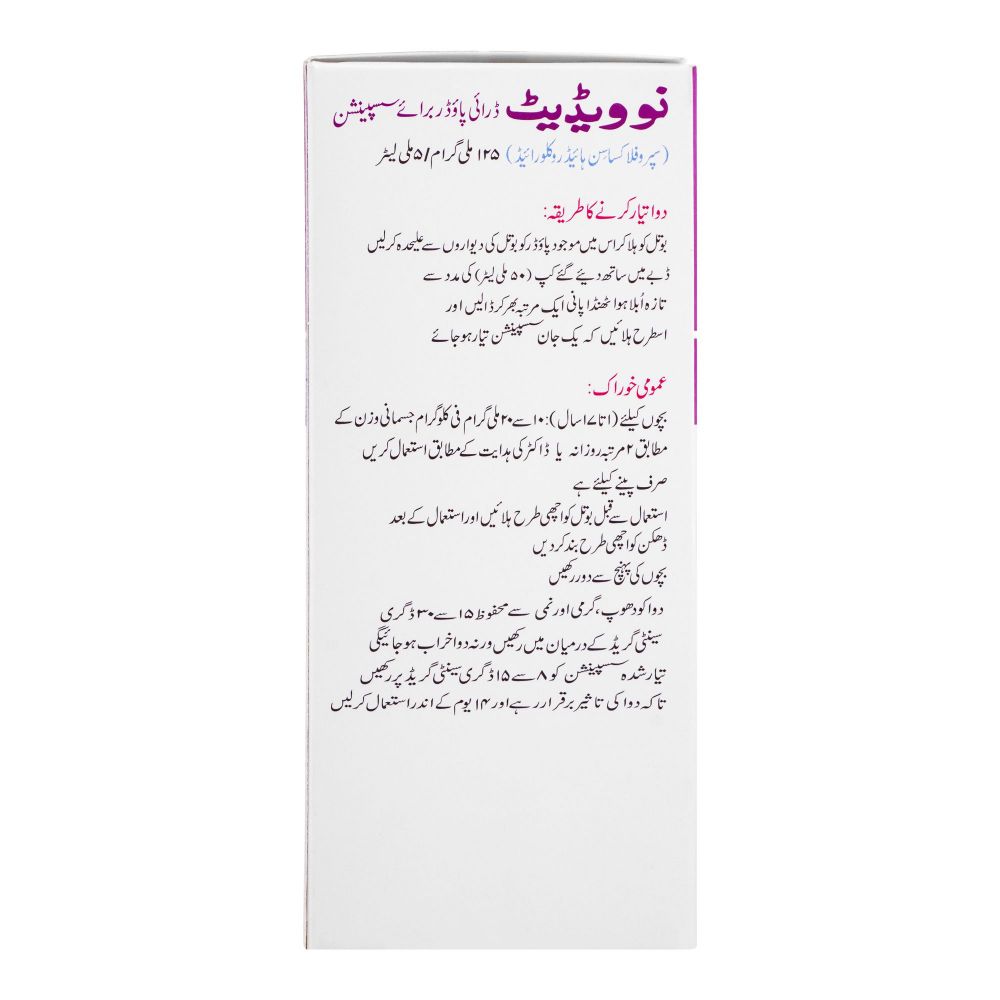 نوویڈیٹ ڈرائی پاؤڈر برائے سسپینشن
(سپروفلاکساسِن ہائیڈروکلورائیڈ) ۱۲۵ ملی گرام/۵ ملی لیٹر
دوا تیار کرنے کا طریقہ:
بوتل کو ہلا کر اس میں موجود پاؤڈر کو بوتل کی دیواروں سے علیحدہ کرلیں
ڈبے میں ساتھ دیئے گئے کپ (۵۰ ملی لیٹر) کی مدد سے
تازہ اُبلا ہوا ٹھنڈا پانی ایک مرتبہ بھر کر ڈالیں اور
اسطرح ہلائیں کہ یک جان سسپینشن تیار ہو جائے
عمومی خوراک:
بچوں کیلئے (۱ تا ۱۷ سال): ۱۰ سے ۲۰ ملی گرام فی کلوگرام جسمانی وزن کے
مطابق ۲ مرتبہ روزانہ یا ڈاکٹر کی ہدایت کے مطابق استعمال کریں
صرف پینے کیلئے ہے
استعمال سے قبل بوتل کو اچھی طرح ہلائیں اور استعمال کے بعد
ڈھکن کو اچھی طرح بند کر دیں
بچوں کی پہنچ سے دور رکھیں
دوا کو دھوپ، گرمی اور نمی سے محفوظ ۱۵ سے ۳۰ ڈگری
سینٹی گریڈ کے درمیان میں رکھیں ورنہ دوا خراب ہو جائیگی
تیار شدہ سسپینشن کو ۸ سے ۱۵ ڈگری سینٹی گریڈ پر رکھیں
تا کہ دوا کی تاثیر برقرار رہے اور ۱۴ یوم کے اندر استعمال کرلیں